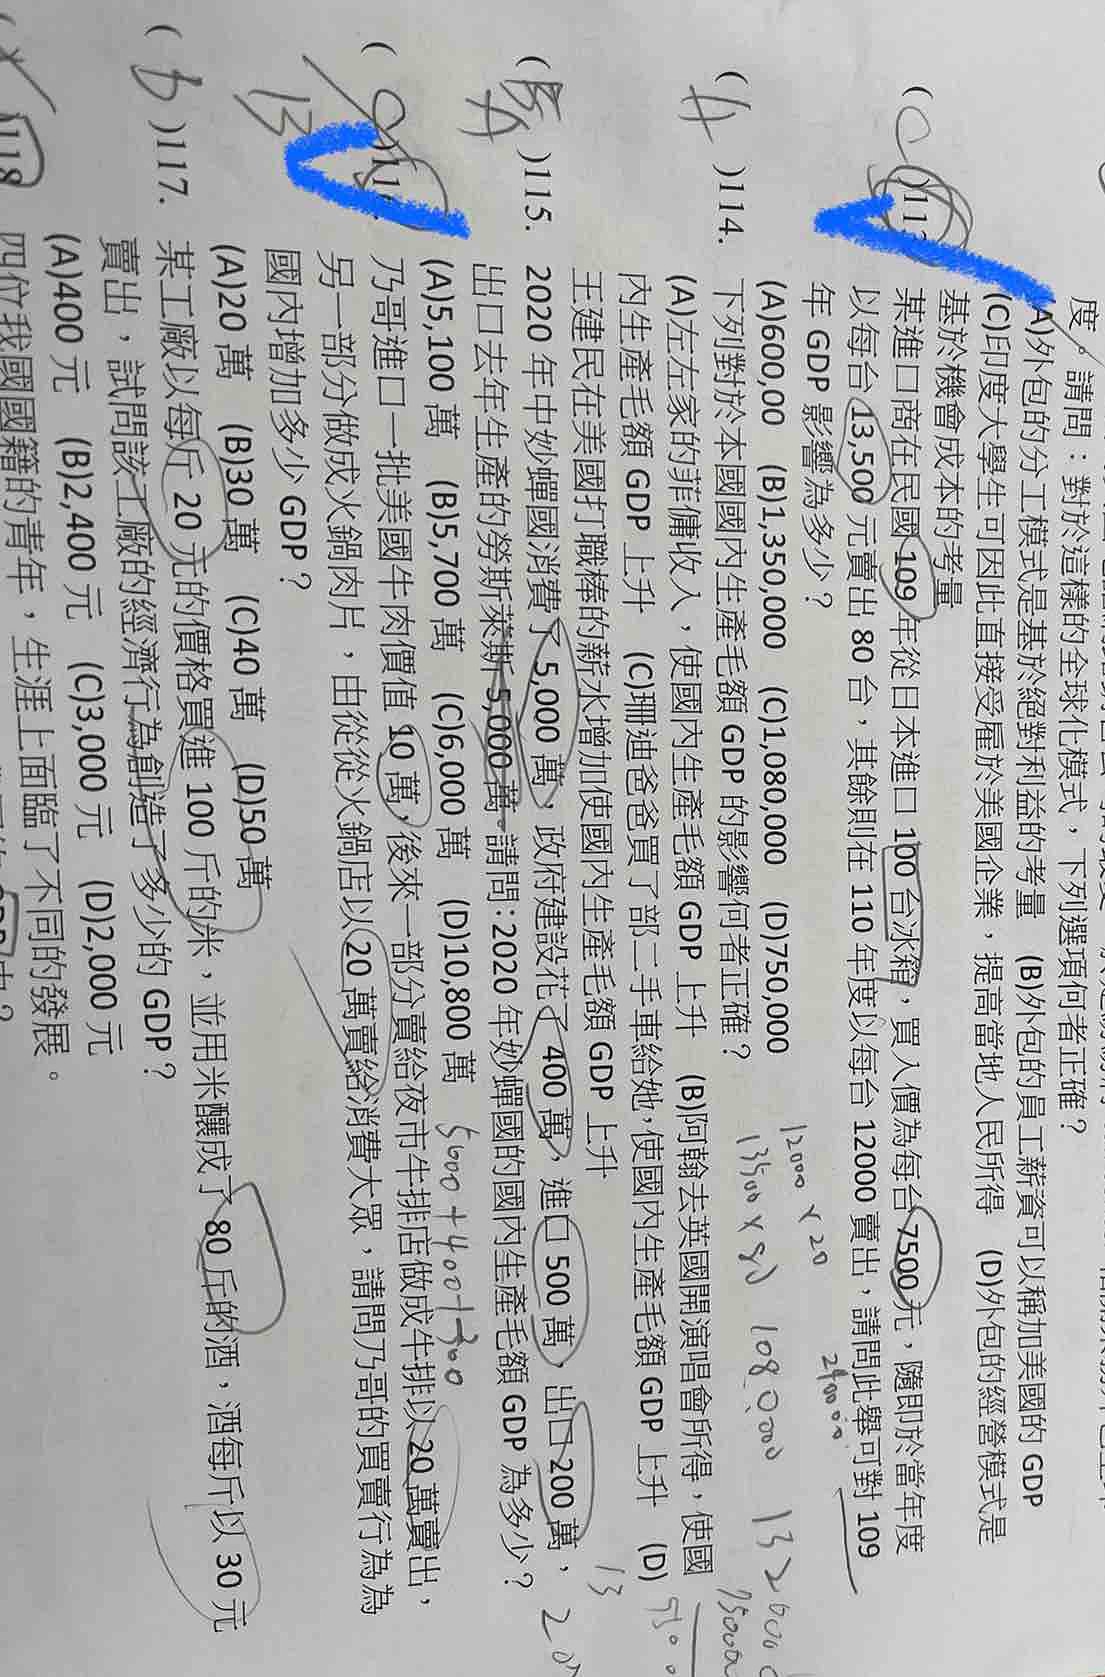 度。請問：對於這樣的全球化模式，下列選項何者正確？
(A)外包的分工模式是基於絕對利益的考量 (B)外包的員工薪資可以稱加美國的 GDP
(C)印度大學生可因此直接受雇於美國企業，提高當地人民所得 (D)外包的經營模式是
基於機會成本的考量
某進口商在民國 109 年從日本進口 100 台冰箱，買入價為每台 7500 元，隨即於當年度
以每台 13,500 元賣出 80 台，其餘則在 110 年度以每台 12000 賣出，請問此舉可對 109
年 GDP 影響為多少？
(A)600,00 (B)1,350,000 (C)1,080,000 (D)750,000
12000 × 20
240000
13500 × 80 1080000
( A )114. 下列對於本國國內生產毛額 GDP 的影響何者正確？
(A)左左家的菲傭收入，使國內生產毛額 GDP 上升 (B)阿翰去英國開演唱會所得，使國
內生產毛額 GDP 上升 (C)珊迪爸爸買了部二手車給她，使國內生產毛額 GDP 上升 (D)
王建民在美國打職棒的薪水增加使國內生產毛額 GDP 上升
( A )115. 2020 年中妙蟬國消費了 5,000 萬，政府建設花了 400 萬，進口 500 萬，出口 200 萬，
出口去年生產的勞斯萊斯 5,000 萬。請問：2020 年妙蟬國的國內生產毛額 GDP 為多少？
(A)5,100 萬 (B)5,700 萬 (C)6,000 萬 (D)10,800 萬
5000 + 400 + 300
乃哥進口一批美國牛肉價值 10 萬，後來一部分賣給夜市牛排店做成牛排以 20 萬賣出，
另一部分做成火鍋肉片，由從從火鍋店以 20 萬賣給消費大眾，請問乃哥的買賣行為為
國內增加多少 GDP？
(A)20 萬 (B)30 萬 (C)40 萬 (D)50 萬
( b )117. 某工廠以每斤 20 元的價格買進 100 斤的米，並用米釀成了 80 斤的酒，酒每斤以 30 元
賣出，試問該工廠的經濟行為創造了多少的 GDP？
(A)400 元 (B)2,400 元 (C)3,000 元 (D)2,000 元
118 四位我國國籍的青年，生涯上面臨了不同的發展。